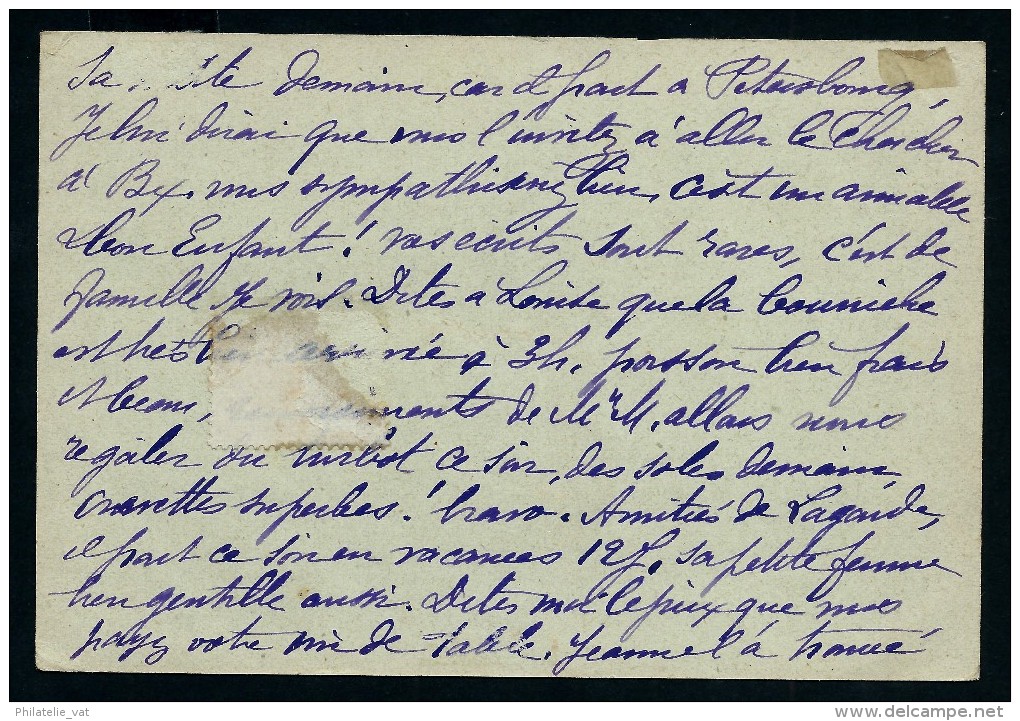 Sa visite demain, car il part à Pétersbourg,
Je lui dirai que vous l'invitez à aller le chercher
à Bex, vous sympathiserez bien, c'est un aimable
bon Enfant! vos écrits sont rares, c'est de
famille je vois. Dites à Louise que la bourriche
est très bien arrivée à 3h, poisson bien frais
et beau, de Mr M, allons nous
régaler du turbot ce soir, des soles demain,
crevettes superbes! bravo. Amitiés de Lagarde,
il part ce soir en vacances 12 j, sa petite femme
bien gentille aussi. Dites moi le prix que vous
payez votre vin de table. Jeanne l'a trouvé
Philatelie_vat